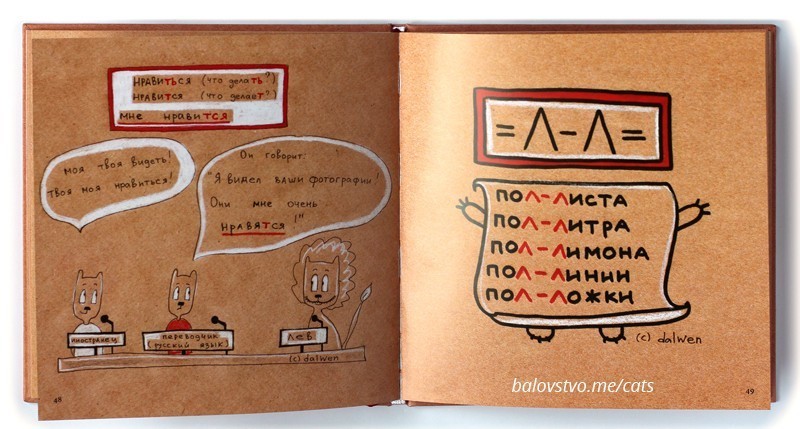 нравиться (что делать?)
нравится (что делает?)
мне нравится
моя твоя видеть!
твоя моя нравиться!
Он говорит:
"Я видел ваши фотографии!
Они мне очень
нравятся!"
иностранец
переводчик
(русский язык)
лев
(c) dalwen
48
=Л-Л=
пол-листа
пол-литра
пол-лимона
пол-линии
пол-ложки
(c) dalwen
balovstvo.me/cats
49